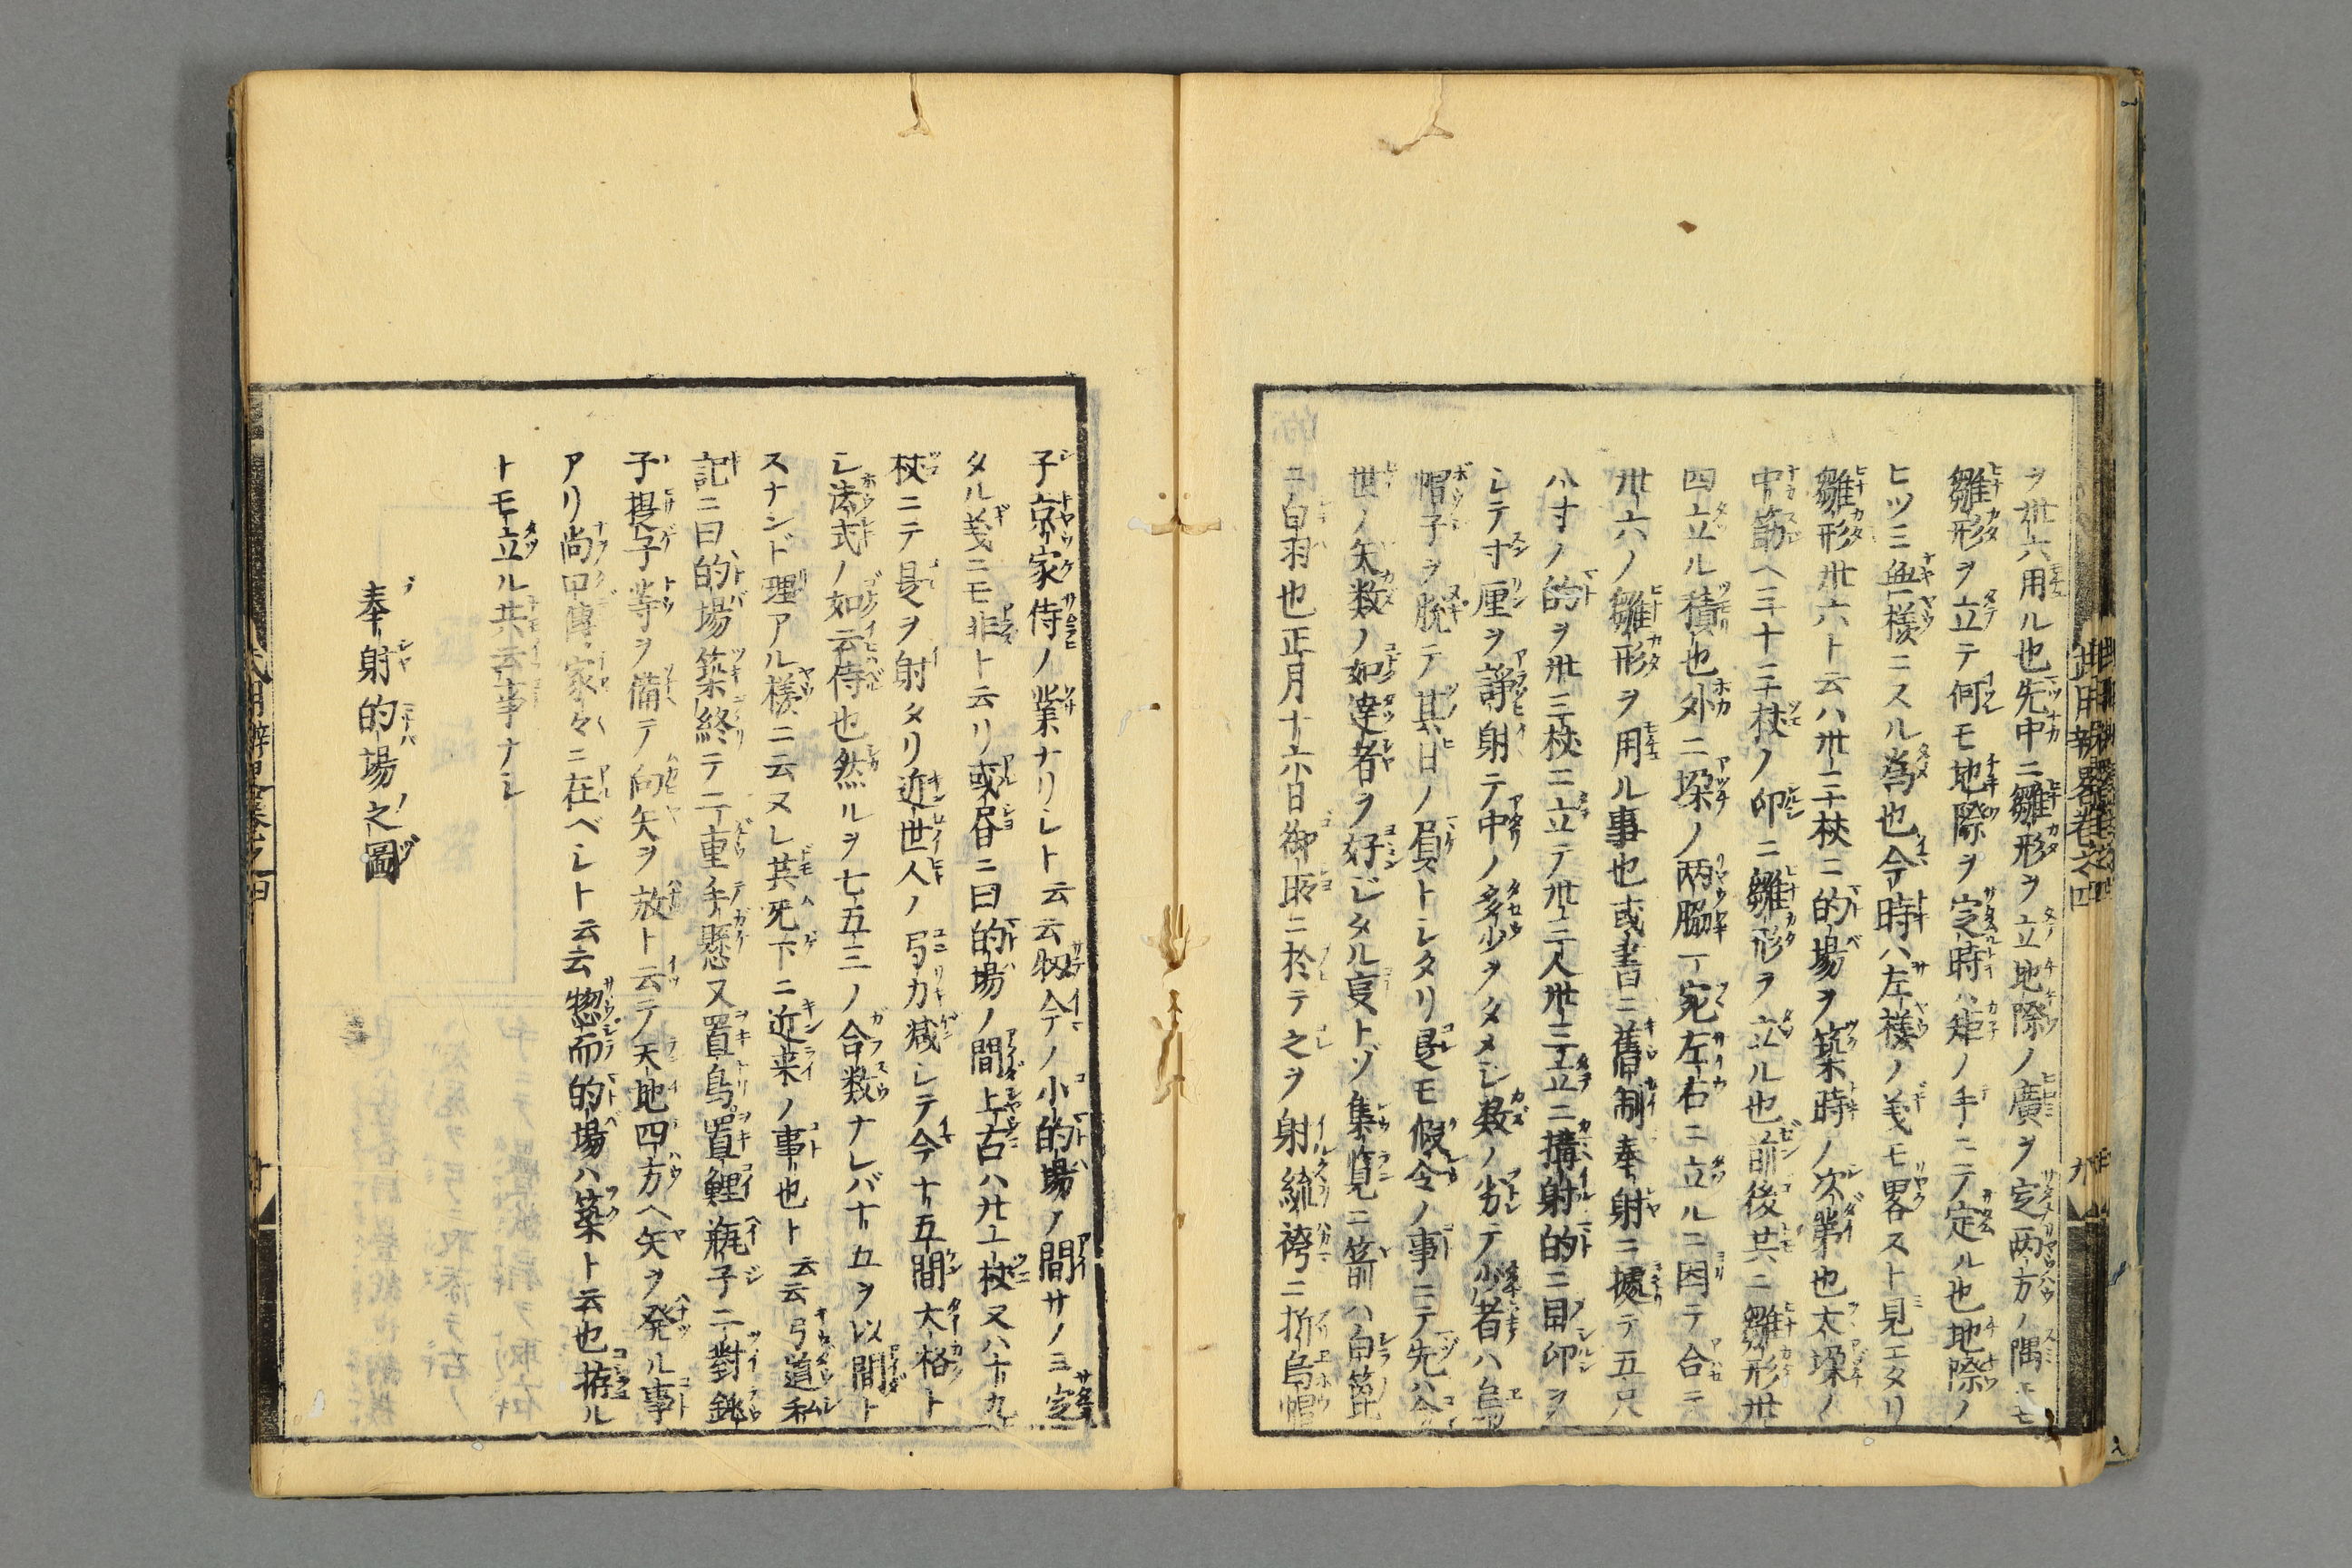 ヲ卅六用ル也先中ニ雛形ヲ立地際ノ廣ヲ定両方ノ隅ニモ
雛形ヲ立テ何モ地際ヲ定時ハ矩ノ手ニテ定ル也地際ノ
ヒツミ無様ニスル為也今時ハ左様ノ義モ畧スト見エタリ
雛形卅六ト云ハ卅三杖ニ的場ヲ築時ノ次第也太垜ノ
中筋ヘ三十三杖ノ印ニ雛形ヲ立ル也前後共ニ雛形卅
四立ル積也外ニ垜ノ両脇一宛左右ニ立ルニ因テ合テ
卅六ノ雛形ヲ用ル事也或書ニ舊制奉射ニ據テ五尺
八寸ノ的ヲ卅三杖ニ立テ卅三人卅三立ニ搆射的ニ目印ヲ
シテ寸厘ヲ諍射テ中ノ多少ヲタメシ数ノ劣テ少者ハ烏
帽子ヲ脱テ其日ノ負トシタリ是モ假令ノ事ニテ先ハ今
世ノ矢数ノ如達者ヲ好ジタル変トゾ集覧ニ箭ハ白篦
ニ白羽也正月十六日御所ニ於テ之ヲ射総袴ニ折烏帽
子京家侍ノ業ナリシト云云扨今ノ小的場ノ間サノミ定
タル義ニモ非ト云リ或昼ニ曰的場ノ間上古ハ廿一杖又ハ十九
杖ニテ是ヲ射タリ近世人ノ弓力減シテ今十五間大格ト
シ法式ノ如云侍也然ルヲ七五三ノ合数ナレバ十五ヲ以間ト
スナンド理アル様ニ云ヌレ其死下ニ近来ノ事也ト云云弓道私
記ニ曰的場築終テ二重手懸又置鳥置鯉瓶子二對銚
子提子等ヲ備テ向矢ヲ放ト云テ天地四方ヘ矢ヲ発ル事
アリ尚甲傳家々ニ在ベシト云云惣而的場ハ築ト云也掘ル
トモ立ル共云事ナシ
奉射的場之圖